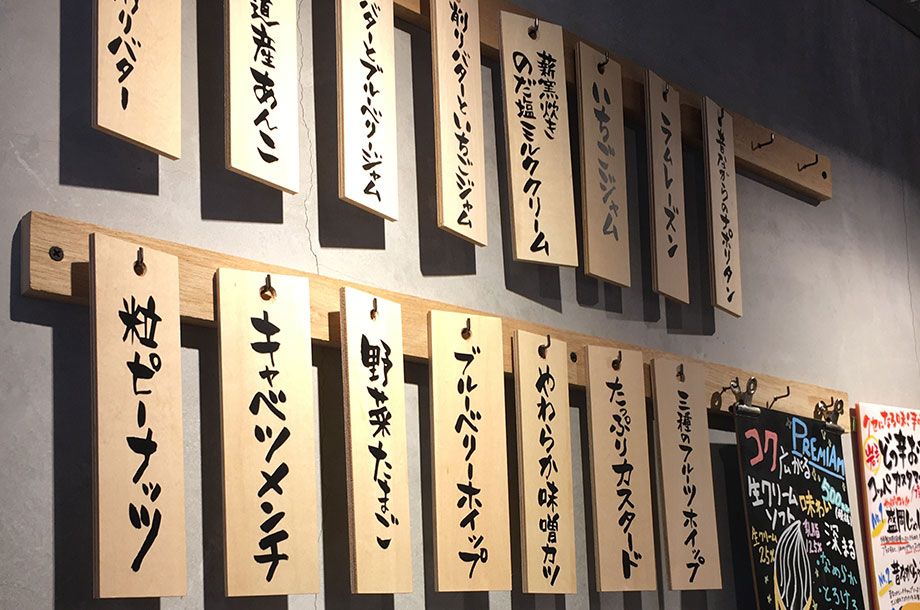 削りバター
道産あんこ
バターとブルーベリージャム
削りバターといちごジャム
薪窯炊き
のだ塩ミルククリーム
いちごジャム
ラムレーズン
昔ながらのナポリタン
粒ピーナッツ
キャベツメンチ
野菜たまご
ブルーベリーホイップ
やわらか味噌カツ
たっぷりカスタード
三種のフルーツホイップ
PREMIAM
コク広がる
生クリーム
ソフト
味わい
生クリーム
25%
深まる
なめらか
とろける
No.1
盛岡
No.2
昔ながら